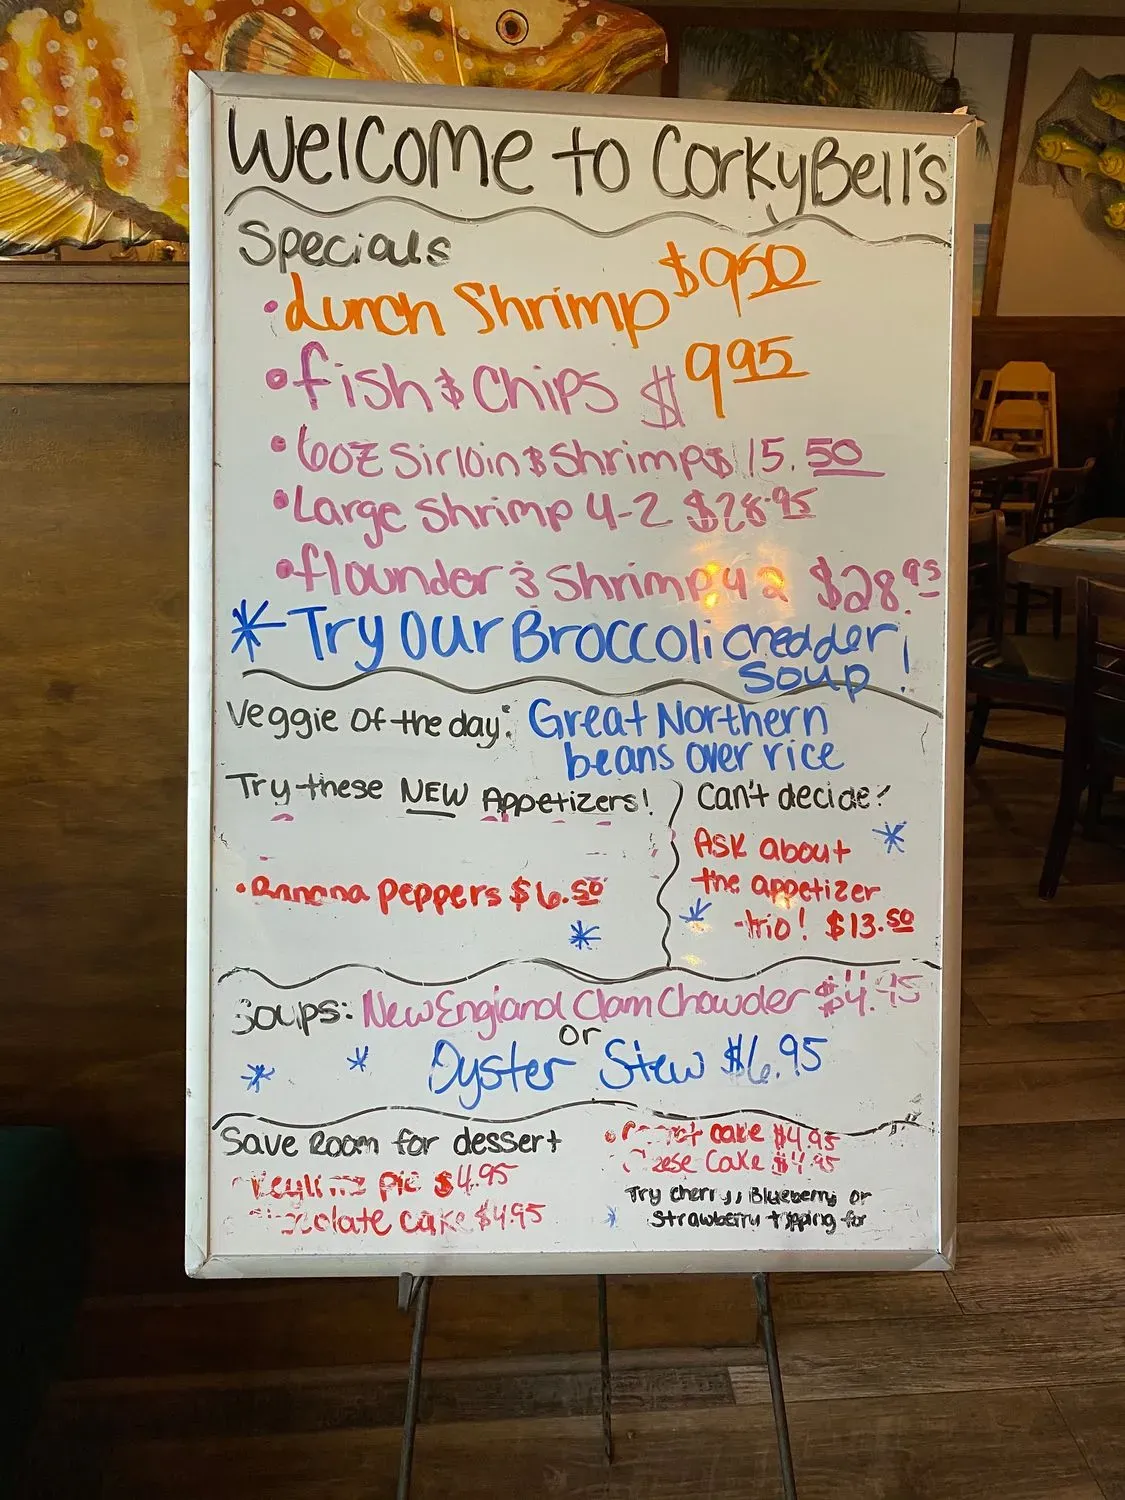 Welcome to CorkyBell's
Specials
• Lunch Shrimp $9.50
• Fish & Chips $9.95
• 6oz Sirloin & Shrimp $15.50
• Large Shrimp 4-2 $28.95
• flounder & Shrimp 4 2 $28.95
* Try Our Broccoli chedder
soup!
Veggie of the day: Great Northern
beans over rice
Try these NEW Appetizers!
• Banana Peppers $6.50
Can't decide?
Ask about
the appetizer
trio! $13.50
Soups: New England Clam Chowder $4.95
or
Oyster Stew $6.95
Save Room for dessert
Keylime pie $4.95
Chocolate cake $4.95
• Carrot cake $4.95
Cheese Cake $4.95
Try cherry, Blueberry or
Strawberry topping for